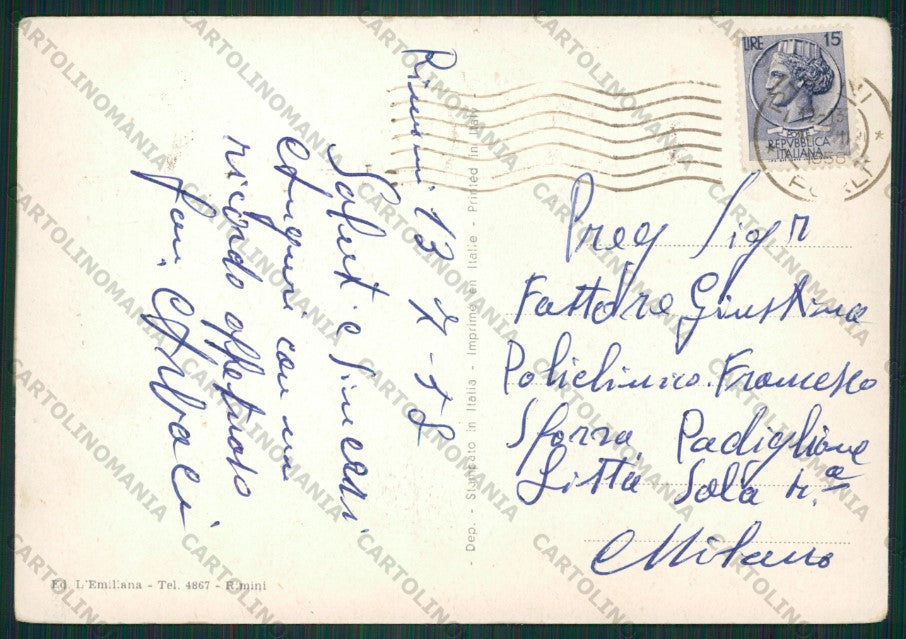 Rimini 13-7-58
Saluti e sinceri
Auguri con un
ricordo affettuoso
fam.
Preg Sigr
Fattore Giustina
Policlinico Francesco
Sforza Padiglione
Litta Sala 4.a
Milano
LIRE 15
POSTE
REPVBBLICA
ITALIANA
FORLI
Dep. - Stampato in Italia - Imprimé en Italie - Printed in Italy
Ed. L'Emiliana - Tel. 4867 - Rimini
CARTOLINOMANIA